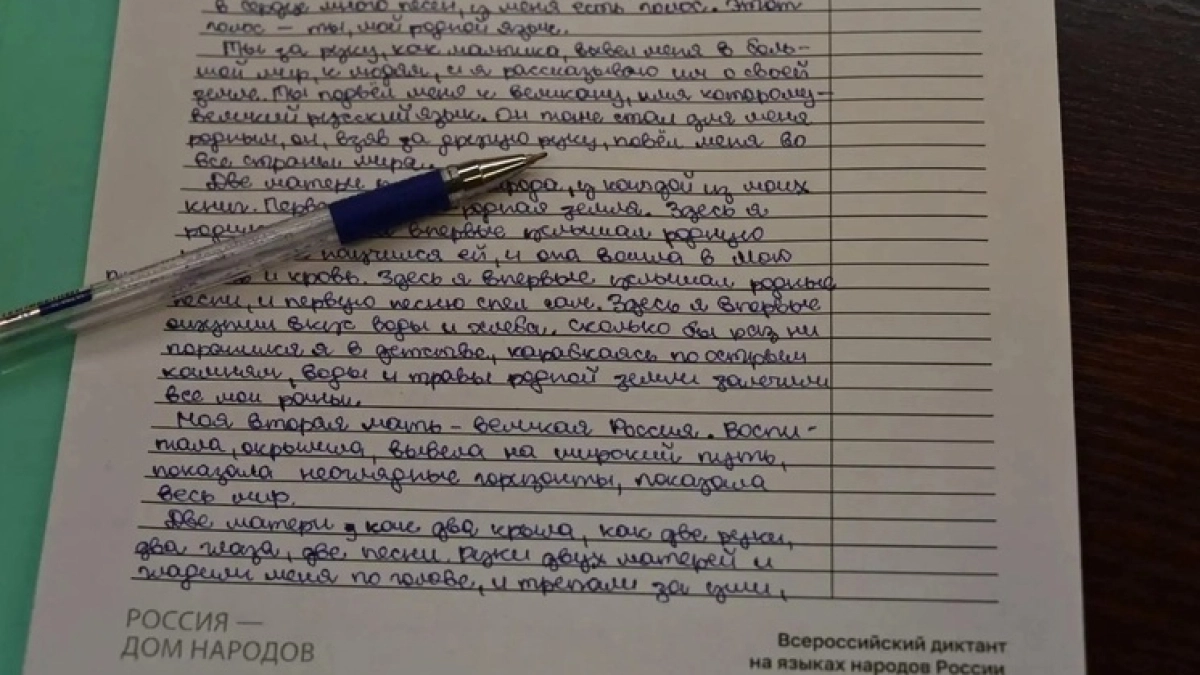 в сердце много песен, у меня есть голос. Этот
голос — ты, мой родной язык.
Ты за руку, как мальчика, вывел меня в боль-
шой мир, к людям, и я рассказываю им о своей
земле. Ты подвёл меня к великану, имя которому —
великий русский язык. Он тоже стал для меня
родным, он, взяв за другую руку, повёл меня во
все страны мира.
Две матери у каждой из моих
книг. родная земля. Здесь я
впервые услышал родную
ей, и она вошла в мою
и кровь. Здесь я впервые услышал родные
песни, и первую песню спел сам. Здесь я впервые
ощутил вкус воды и хлеба. Сколько бы раз ни
поранился я в детстве, карабкаясь по острым
камням, воды и травы родной земли залечили
все мои раны.
Моя вторая мать — великая Россия. Воспи-
тала, окрылила, вывела на широкий путь,
показала неоглядные горизонты, показала
весь мир.
Две матери, как два крыла, как две руки,
два глаза, две песни. Руки двух матерей и
гладили меня по голове, и трепали за уши,
РОССИЯ —
ДОМ НАРОДОВ
Всероссийский диктант
на языках народов России